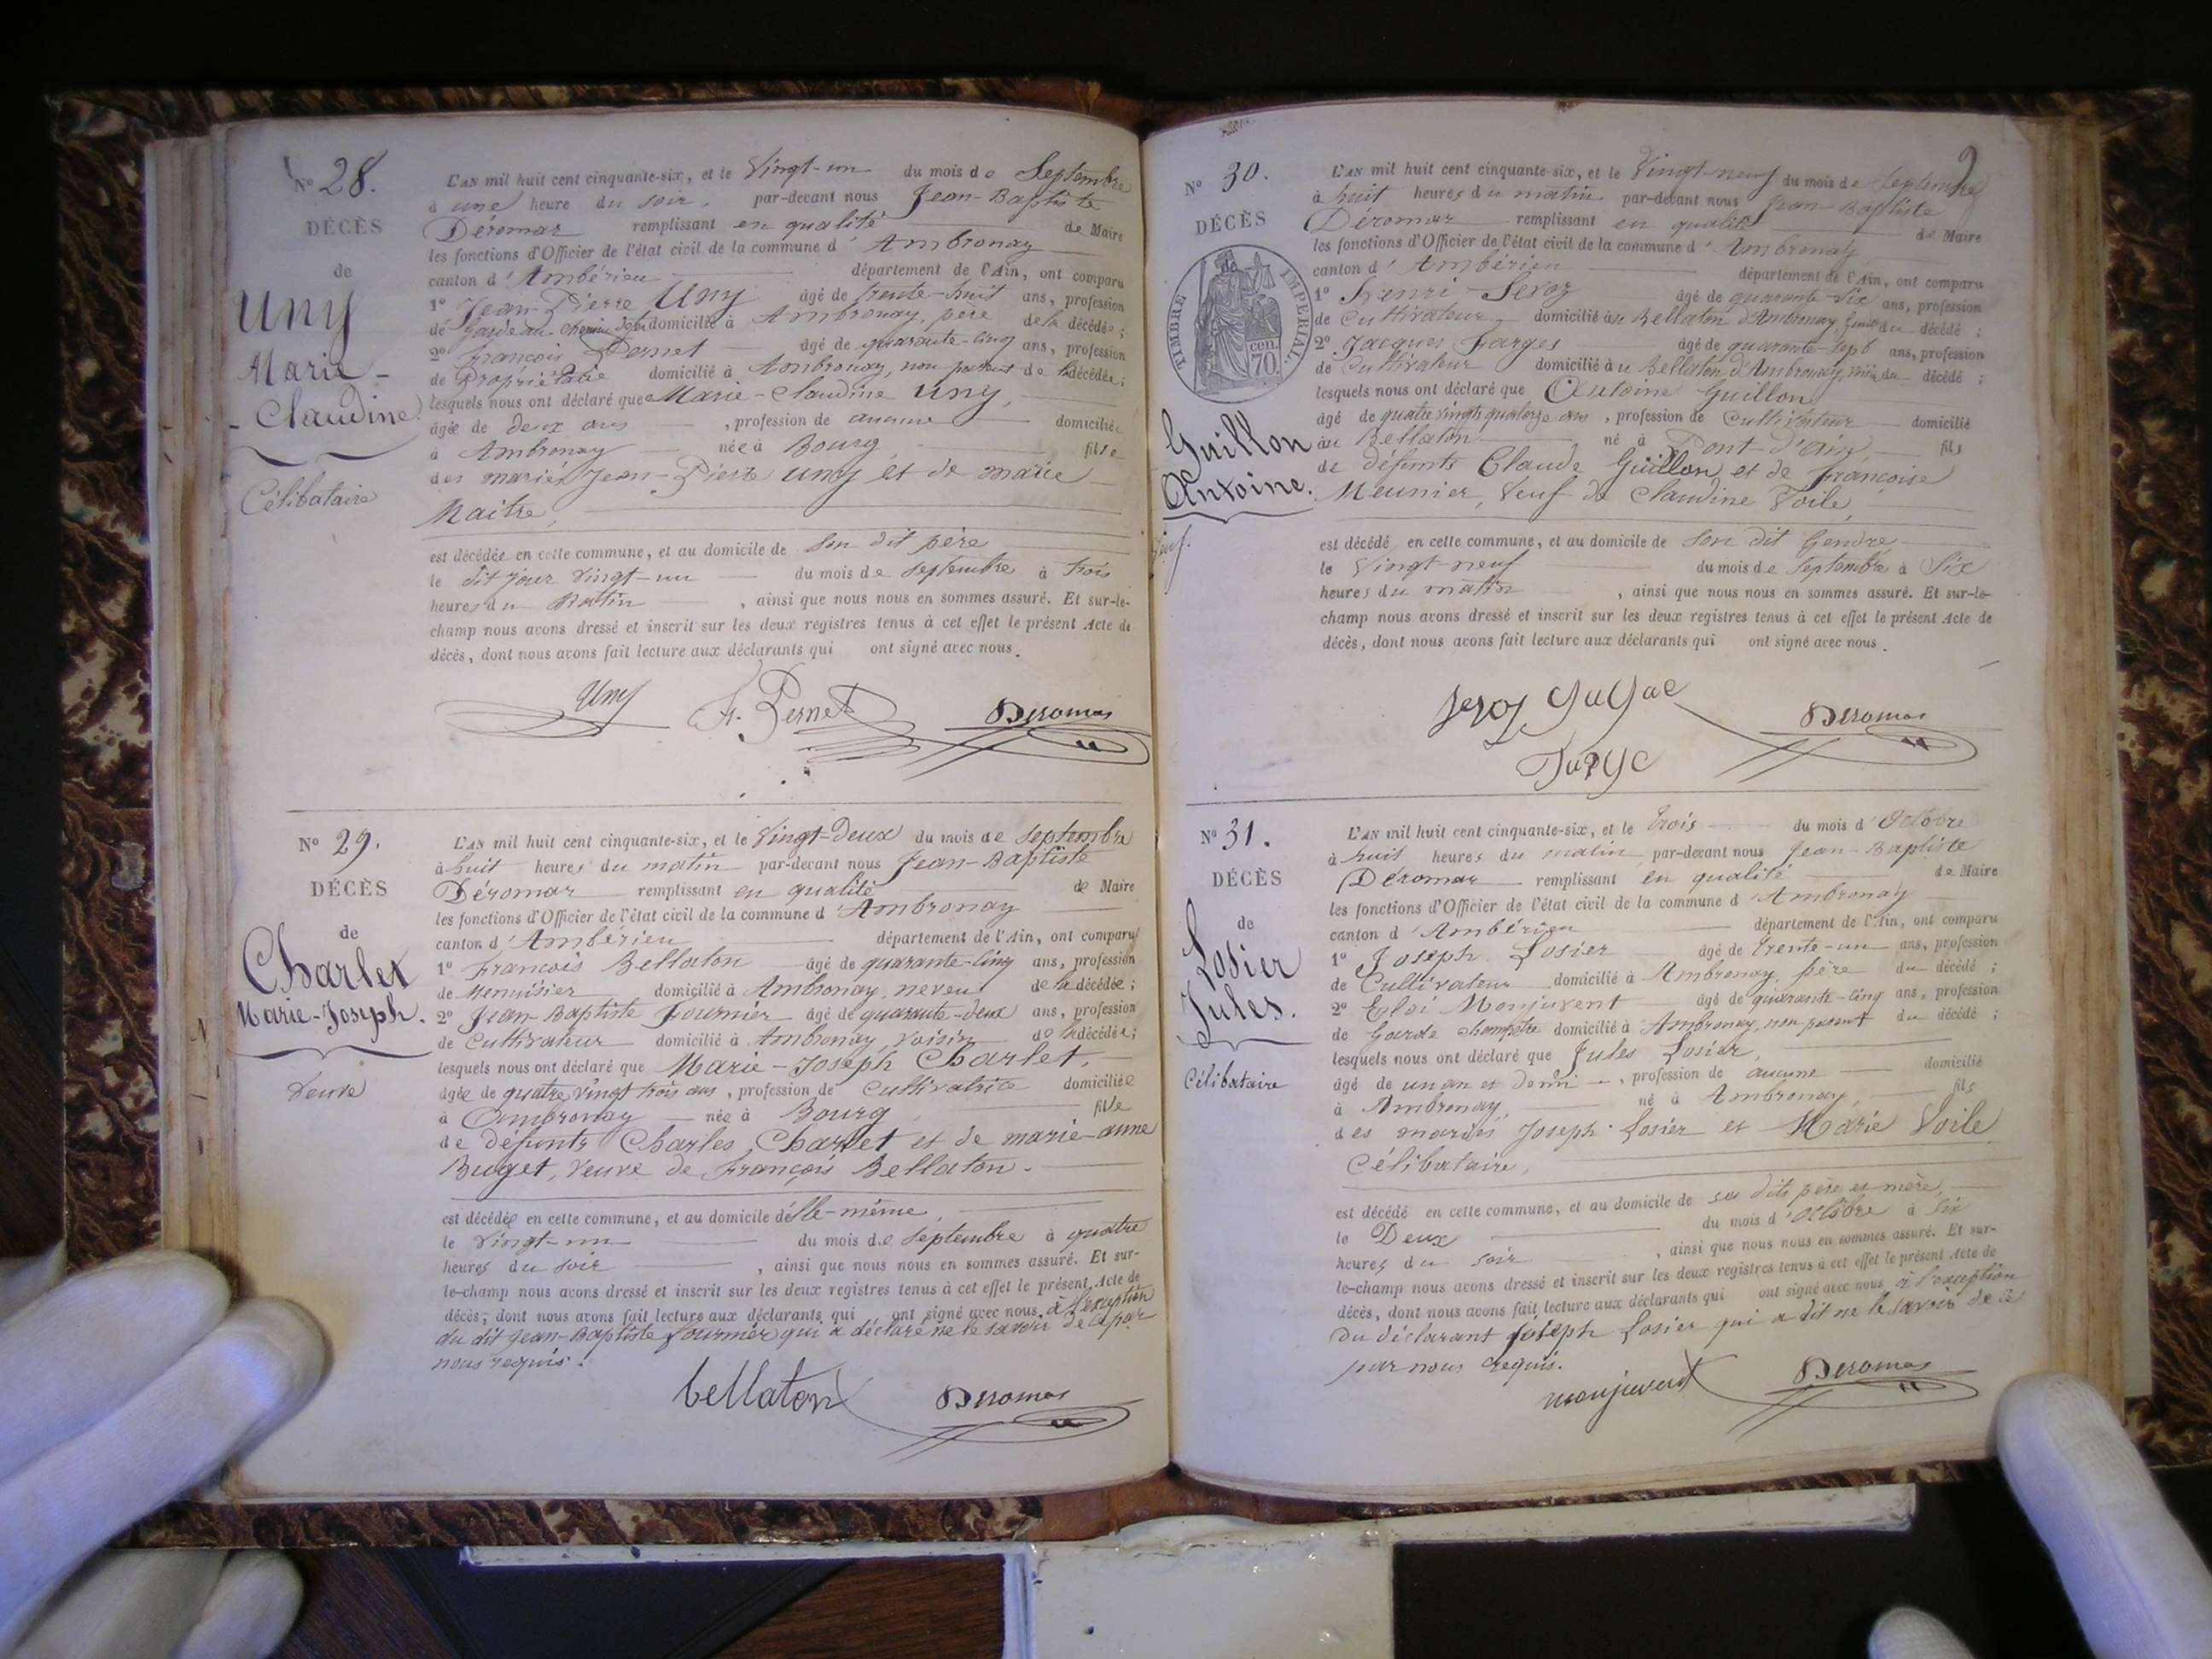 N° 28.
DÉCÈS
de
Uny
Marie-
Claudine
Célibataire
L'AN mil huit cent cinquante-six, et le Vingt-un du mois de Septembre
à une heure du soir, par-devant nous Jean-Baptiste
Déromas remplissant en qualité de Maire
les fonctions d'Officier de l'état civil de la commune d'Ambronay
canton d'Ambérieu département de l'Ain, ont comparu
1° Jean-Pierre Uny âgé de trente-huit ans, profession
de Garde au chemin de fer domicilié à Ambronay, père de la décédée;
2° François Pernet âgé de quarante-cinq ans, profession
de Propriétaire domicilié à Ambronay, non parent de la décédée;
lesquels nous ont déclaré que Marie-Claudine Uny,
âgée de deux ans, profession de aucune domiciliée
à Ambronay née à Bourg fille
des mariés Jean-Pierre Uny et de Marie
Maitre,
est décédée en cette commune, et au domicile de Son dit père
le dit jour vingt-un du mois de Septembre à trois
heures du Matin, ainsi que nous nous en sommes assuré. Et sur-le-
champ nous avons dressé et inscrit sur les deux registres tenus à cet effet le présent Acte de
décès, dont nous avons fait lecture aux déclarants qui ont signé avec nous.
Uny F. Pernet Deromas
N° 29.
DÉCÈS
de
Charlet
Marie-Joseph.
Veuve
L'AN mil huit cent cinquante-six, et le Vingt-Deux du mois de Septembre
à huit heures du matin par-devant nous Jean-Baptiste
Déromas remplissant en qualité de Maire
les fonctions d'Officier de l'état civil de la commune d'Ambronay
canton d'Ambérieu département de l'Ain, ont comparu
1° François Bellaton âgé de quarante-cinq ans, profession
de Menuisier domicilié à Ambronay, neveu de la décédée;
2° Jean-Baptiste Fournier âgé de quarante-deux ans, profession
de Cultivateur domicilié à Ambronay, voisin de la décédée;
lesquels nous ont déclaré que Marie-Joseph Charlet,
âgée de quatre vingt trois ans, profession de Cultivatrice domiciliée
à Ambronay née à Bourg, fille
de défunts Charles Charlet et de marie-anne
Buget, veuve de François Bellaton.
est décédée en cette commune, et au domicile d'elle-même,
le vingt-un du mois de Septembre à quatre
heures du soir, ainsi que nous nous en sommes assuré. Et sur-
le-champ nous avons dressé et inscrit sur les deux registres tenus à cet effet le présent Acte de
décès, dont nous avons fait lecture aux déclarants qui ont signé avec nous à l'exception
du dit Jean-Baptiste Fournier qui a déclaré ne le savoir de ce par
nous requis.
bellaton Deromas
N° 30.
DÉCÈS
TIMBRE IMPÉRIAL.
cen.
70.
Guillon
Antoine.
Veuf.
L'AN mil huit cent cinquante-six, et le Vingt-neuf du mois de Septembre
à huit heures du matin par-devant nous Jean-Baptiste
Déromas remplissant en qualité de Maire
les fonctions d'Officier de l'état civil de la commune d'Ambronay
canton d'Ambérieu département de l'Ain, ont comparu
1° Henri Seroz âgé de quarante-six ans, profession
de Cultivateur domicilié au Bellaton d'Ambronay, Gendre du décédé;
2° Jacques Farges âgé de quarante-sept ans, profession
de Cultivateur domicilié au Bellaton d'Ambronay, voisin du décédé;
lesquels nous ont déclaré que Antoine Guillon
âgé de quatre vingts quatorze ans, profession de Cultivateur domicilié
au Bellaton né à Pont-d'Ain, fils
de défunts Claude Guillon et de Françoise
Meunier, Veuf de Claudine Voile,
est décédé en cette commune, et au domicile de Son dit Gendre
le Vingt-neuf du mois de Septembre à Six
heures du matin, ainsi que nous nous en sommes assuré. Et sur-le-
champ nous avons dressé et inscrit sur les deux registres tenus à cet effet le présent Acte de
décès, dont nous avons fait lecture aux déclarants qui ont signé avec nous.
Deromas
N° 31.
DÉCÈS
de
Losier
Jules.
Célibataire
L'AN mil huit cent cinquante-six, et le trois du mois d'Octobre
à huit heures du matin par-devant nous Jean-Baptiste
Déromas remplissant en qualité de Maire
les fonctions d'Officier de l'état civil de la commune d'Ambronay
canton d'Ambérieu département de l'Ain, ont comparu
1° Joseph Losier âgé de trente-un ans, profession
de Cultivateur domicilié à Ambronay, père du décédé;
2° Eloi Monjuvent âgé de quarante-cinq ans, profession
de Garde champêtre domicilié à Ambronay, non-parent du décédé;
lesquels nous ont déclaré que Jules Losier,
âgé de un an et demi, profession de aucune domicilié
à Ambronay, né à Ambronay, fils
des mariés Joseph Losier et Marie Voile
Célibataire,
est décédé en cette commune, et au domicile de ses dits père et mère,
le Deux du mois d'Octobre à Six
heures du soir, ainsi que nous nous en sommes assuré. Et sur-
le-champ nous avons dressé et inscrit sur les deux registres tenus à cet effet le présent Acte de
décès, dont nous avons fait lecture aux déclarants qui ont signé avec nous à l'exception
du déclarant Joseph Losier qui a dit ne le savoir de ce
par nous requis.
monjuvent Deromas